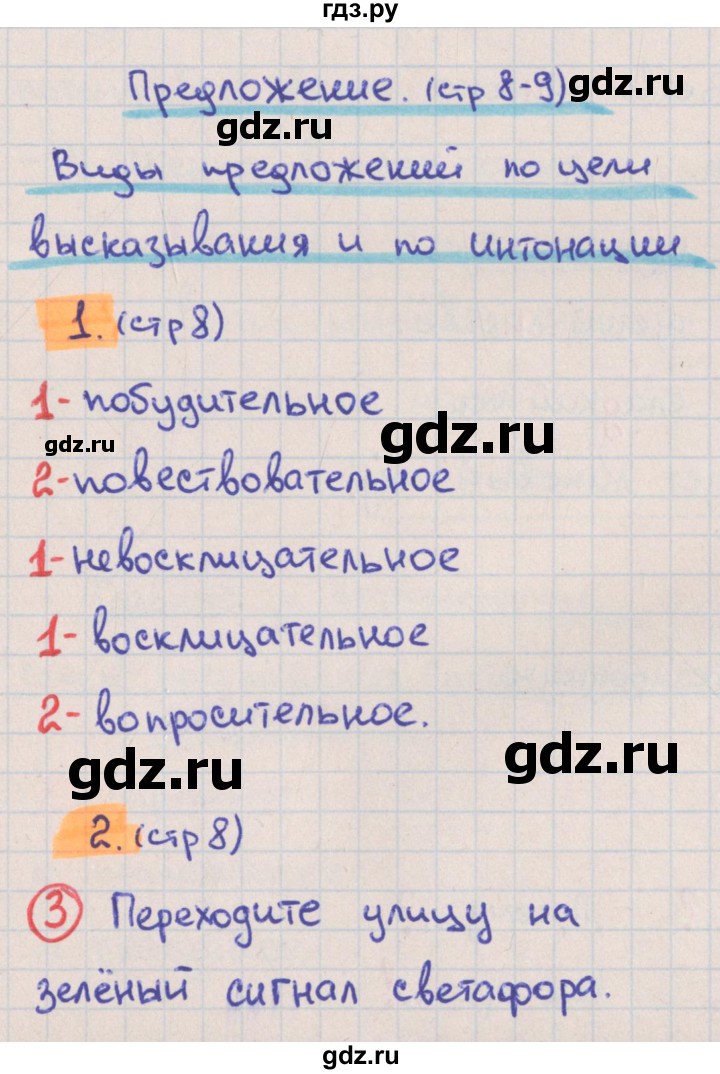 гдз.ру
Предложение. (стр 8-9)
gdz.ru
gdz.ru
Виды предложений по цели
высказывания и по интонации
1. (стр 8)
1- побудительное
gdz.ru
gdz.ru
2- повествовательное
1- невосклицательное
1- восклицательное
2- вопросительное.
gdz.ru
gdz.ru
2. (стр 8)
3 Переходите улицу на
зелёный сигнал светафора.
gdz.ru